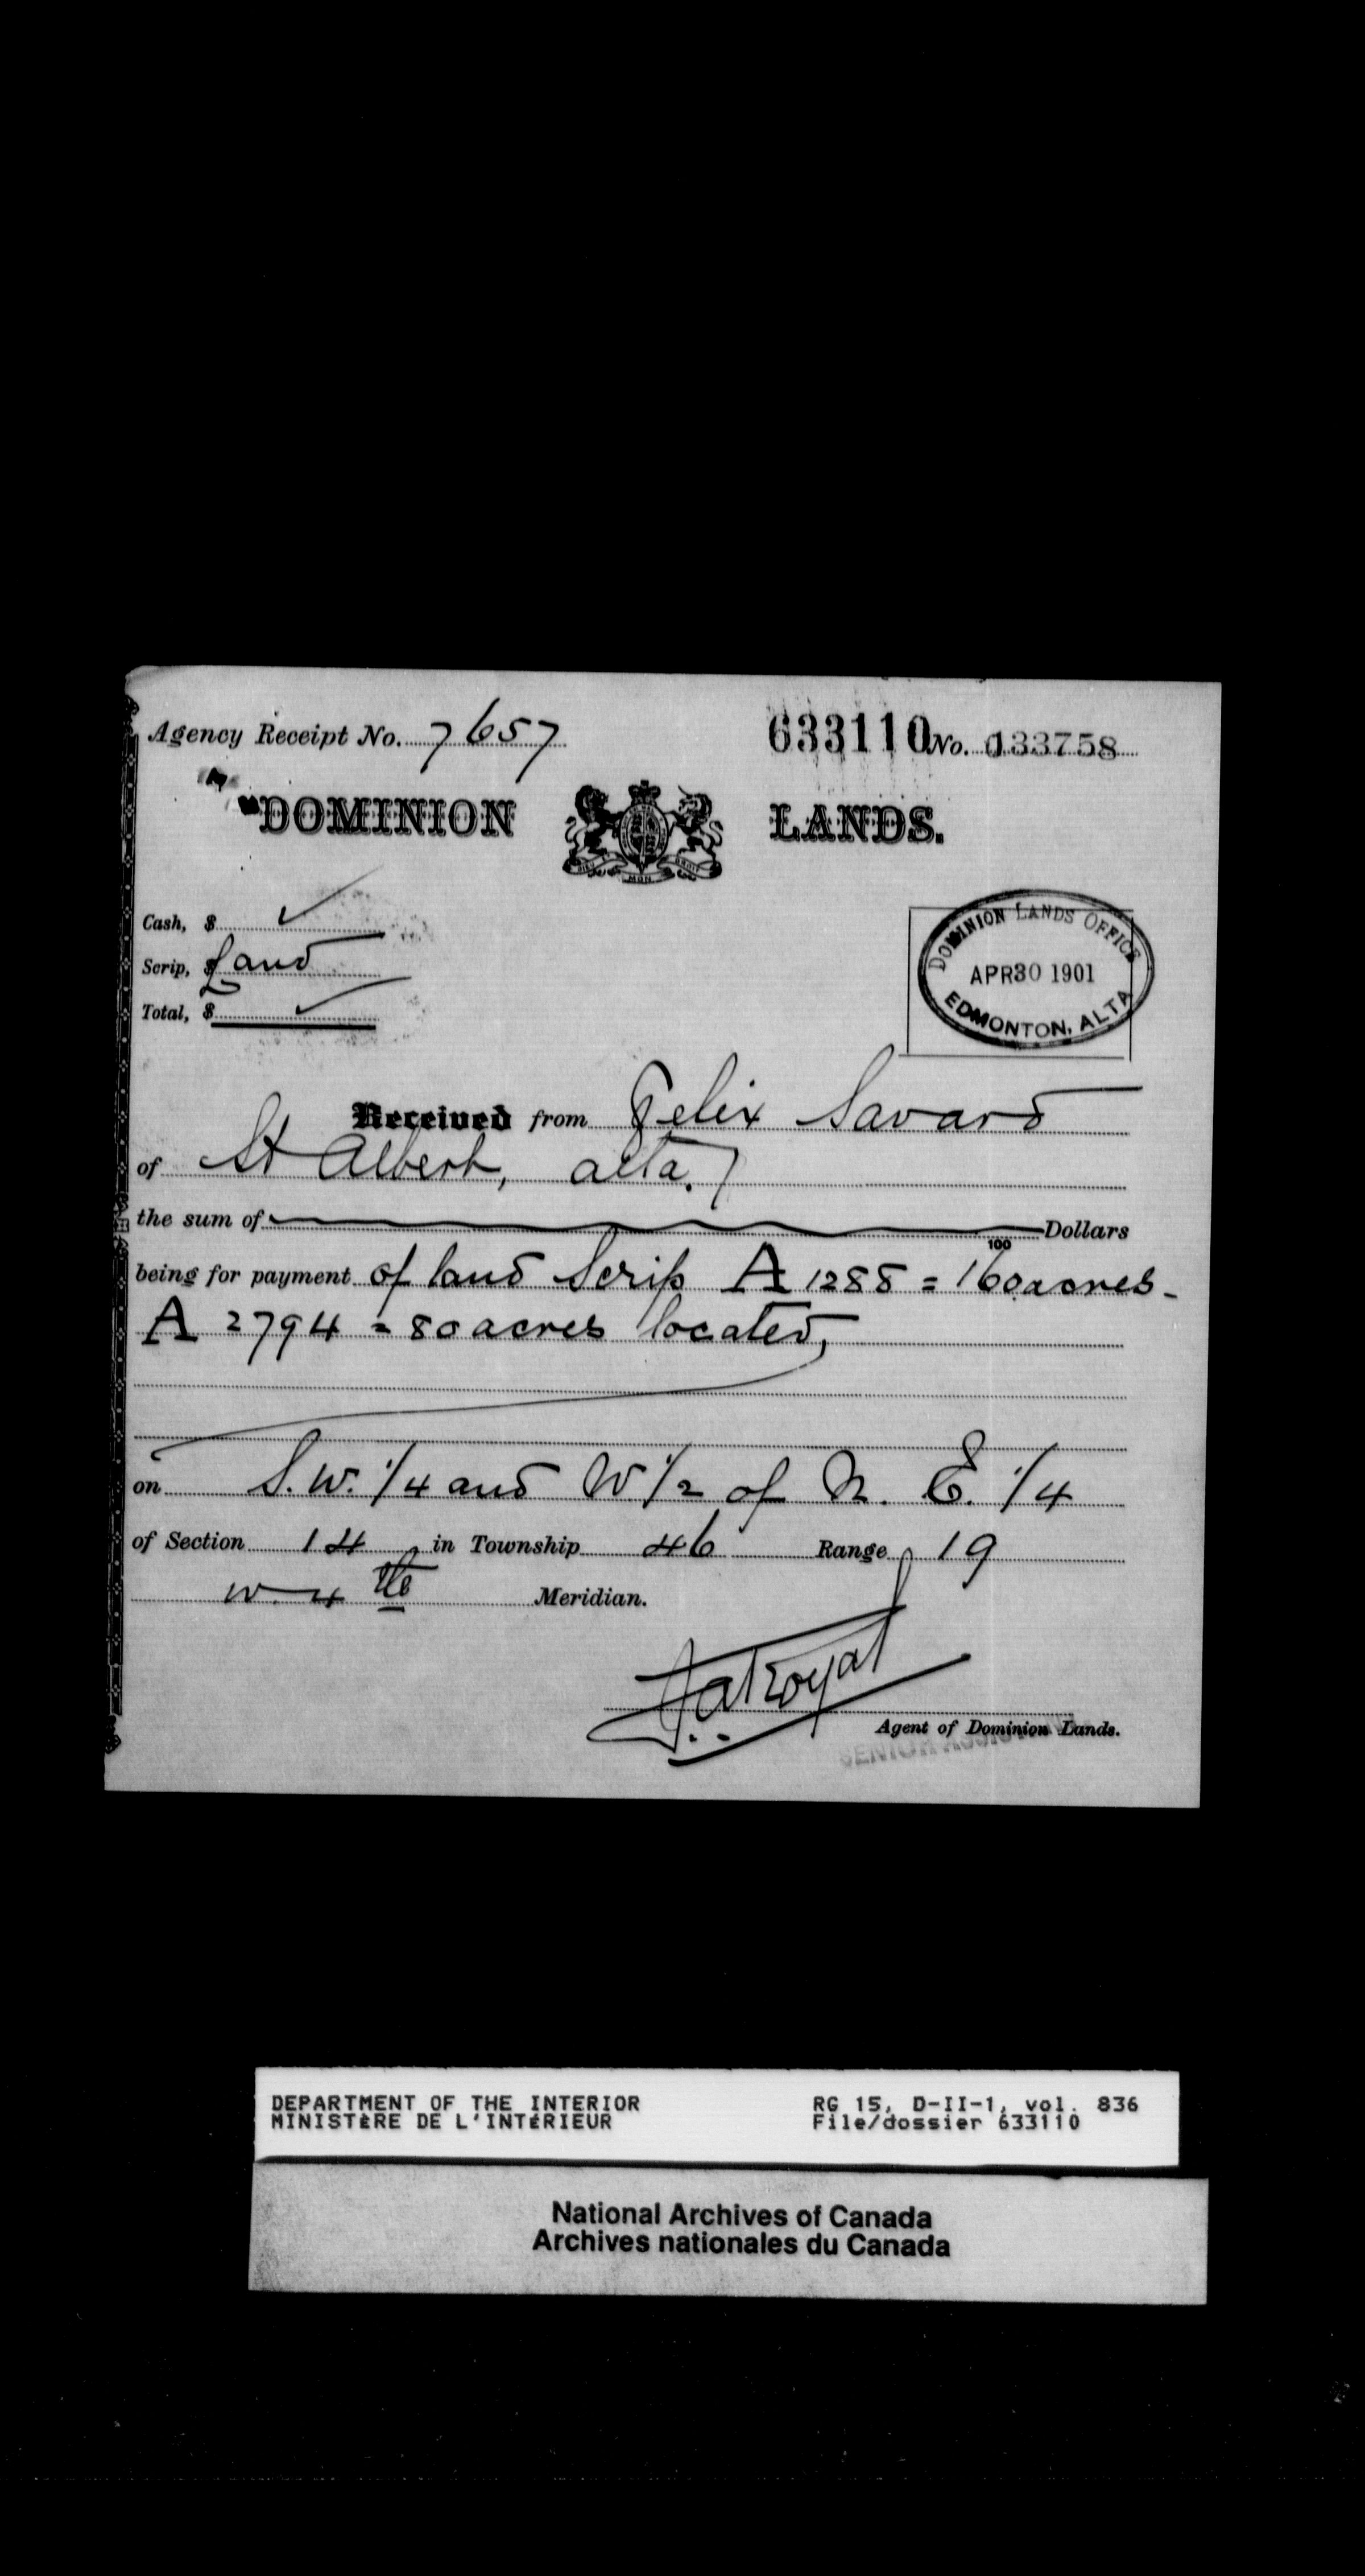 Agency Receipt No. 7657 633110 No. 133758
DOMINION LANDS.
DIEU MON DROIT
Cash, $
Scrip, $ Land
Total, $
DOMINION LANDS OFFICE
APR 30 1901
EDMONTON, ALTA
Received from Felix Savard
of St Albert, alta.
the sum of Dollars
100
being for payment of land Scrip A 1288 = 160 acres -
A 2794 = 80 acres located,
on S.W. 1/4 and W 1/2 of N. E. 1/4
of Section 14 in Township 46 Range 19
W. 4th Meridian.
Royal
Agent of Dominion Lands.
SENIOR
DEPARTMENT OF THE INTERIOR RG 15, D-II-1, vol. 836
MINISTÈRE DE L'INTÉRIEUR File/dossier 633110
National Archives of Canada
Archives nationales du Canada